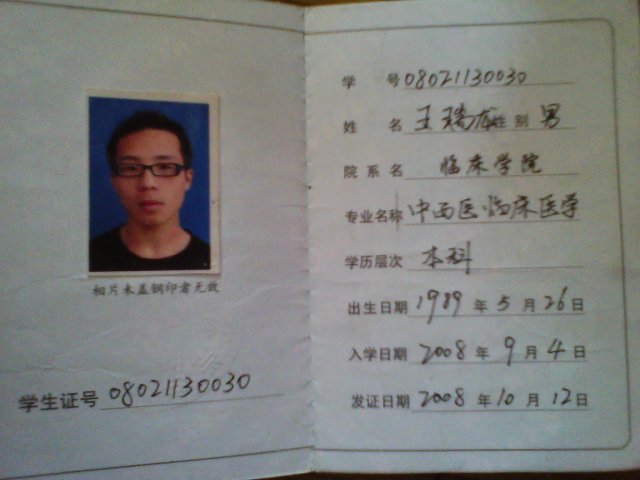 相片未盖钢印者无效
学生证号 08021130030
学 号 08021130030
姓 名 王瑞龙 性 别 男
院 系 名 临床学院
专业名称 中西医临床医学
学历层次 本科
出生日期 1989 年 5 月 26 日
入学日期 2008 年 9 月 4 日
发证日期 2008 年 10 月 12 日